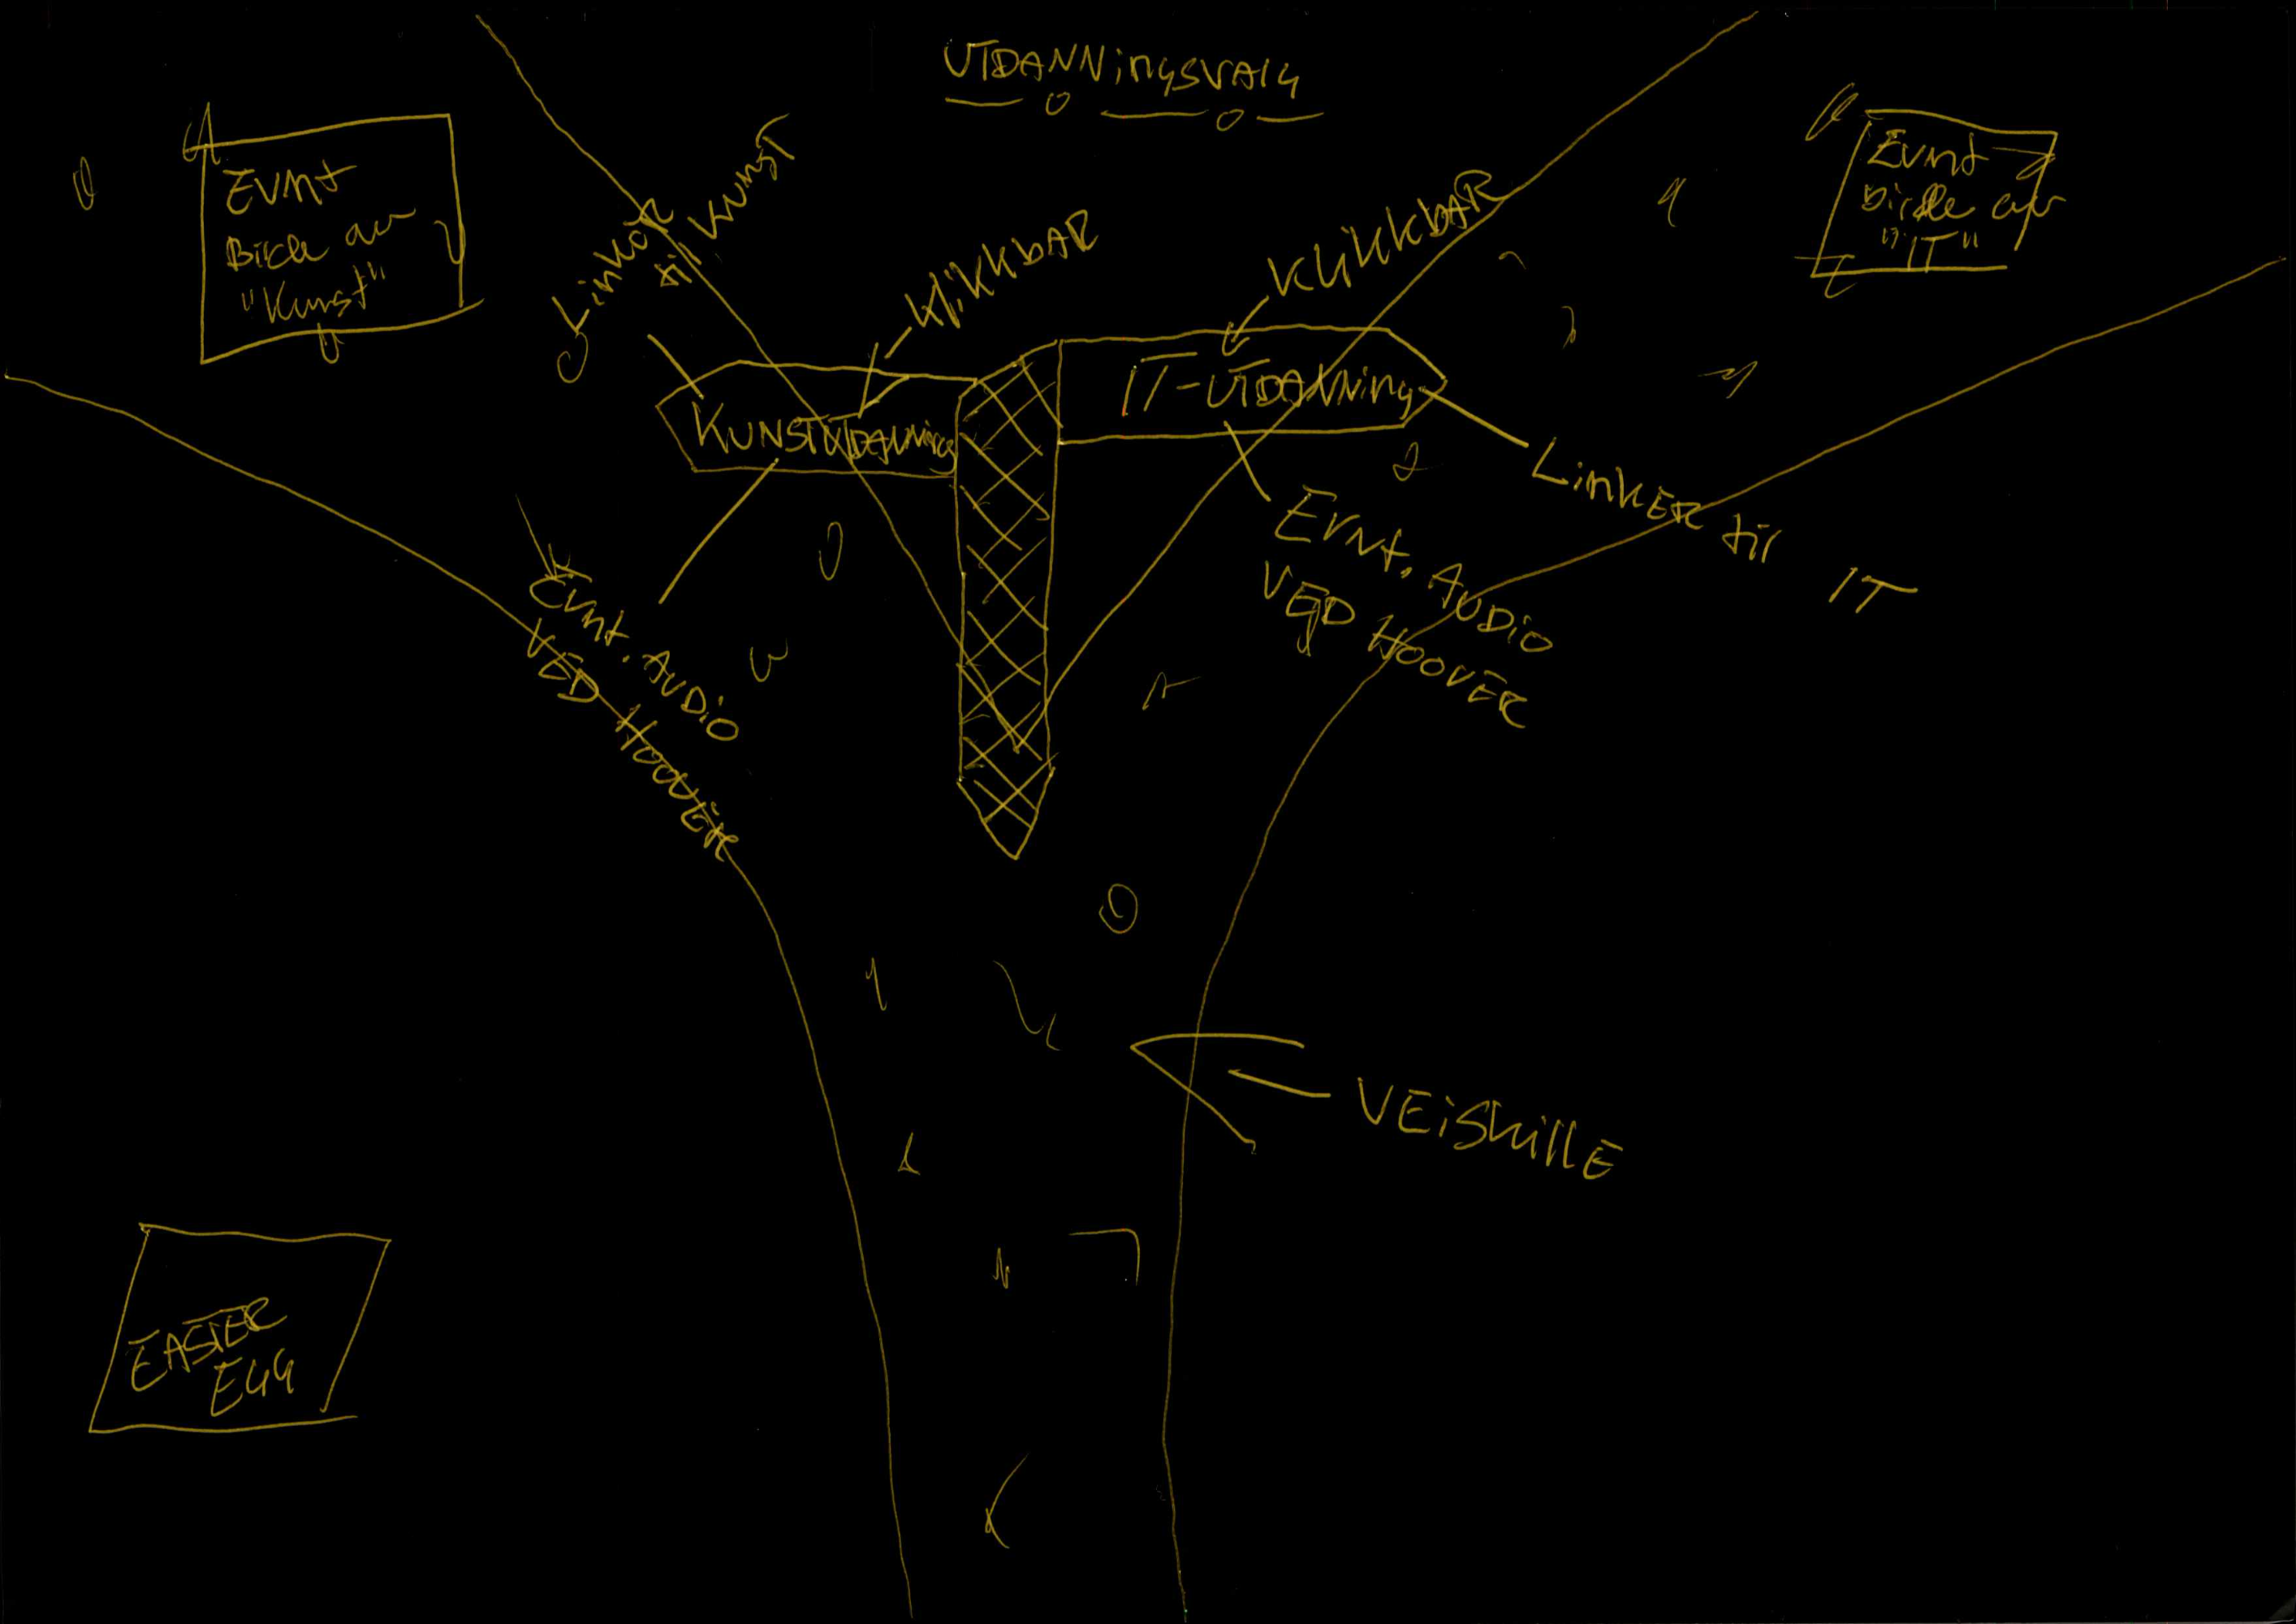 UTDANNINGSVALG
EVNT
Bilde av
"Kunst"
Linker
til Kunst
KlikkBAR
KLIKKBAR
EVNT
Bilde av
"IT"
KUNSTUTDANNING
IT-UTDANNING
Linker til IT
EVNT. AUDIO
VED HOOVER
EVNT. AUDIO
VED HOOVER
VEISKILLE
EASTER
EGG